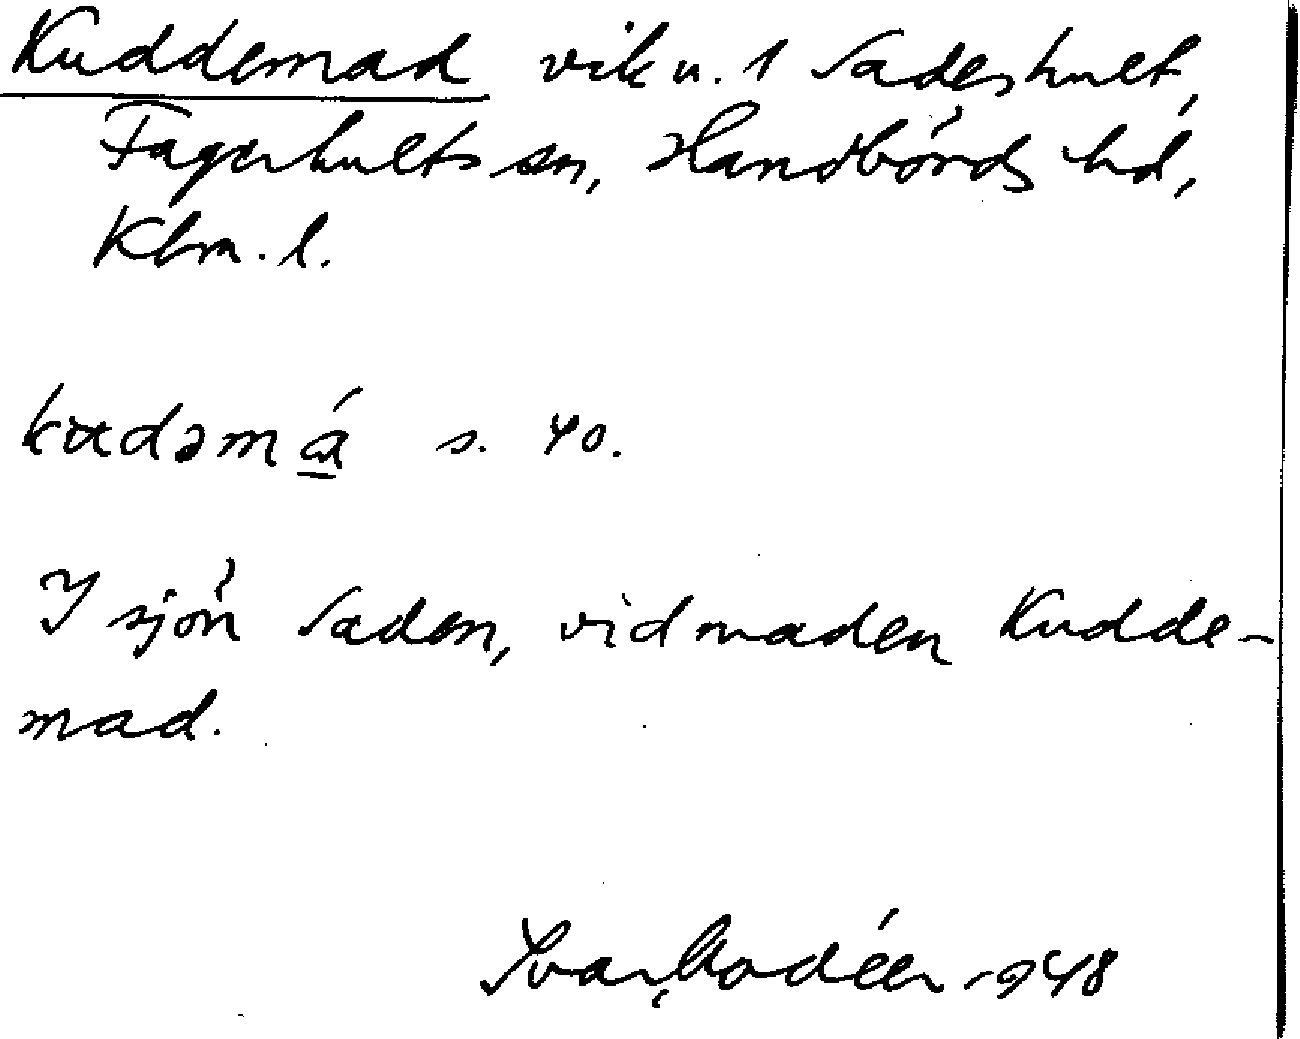 Kuddemad vik u. 1 Sadeshult,
Fagerhults sn, Handbörds hd,
Klm. l.
kudəmá s. 40.
I sjön Saden, vid maden Kudde-
mad.
Ivar Modéer 1948